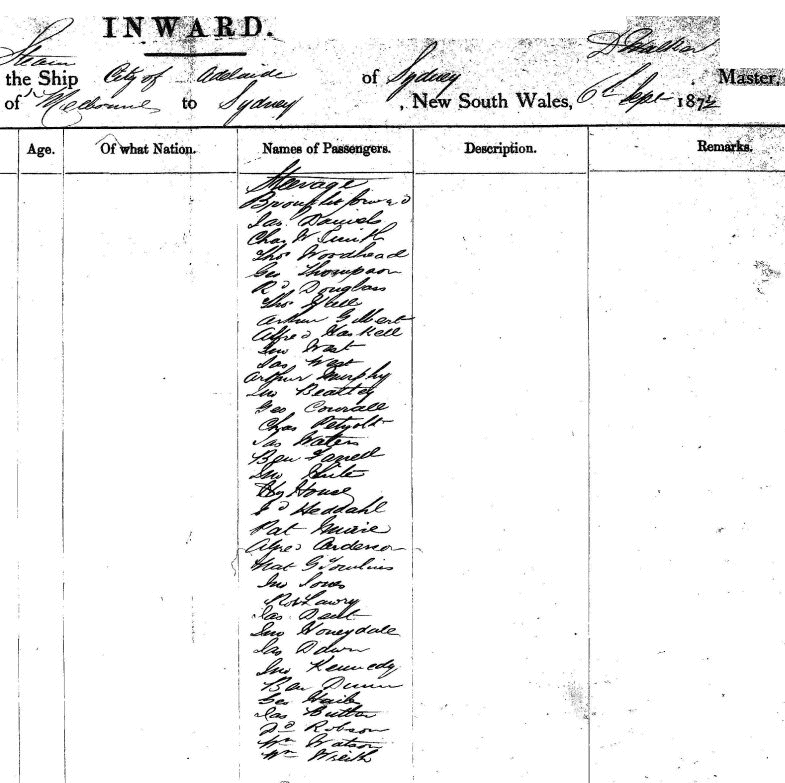 INWARD.
Steam
the Ship City of Adelaide of Sydney, Master,
of Melbourne to Sydney, New South Wales, 6th Sept 187
Age. Of what Nation. Names of Passengers. Description. Remarks.
Steerage
Brought forward
Jas Daniels
Chas W Smith
Thos Woodhead
Geo Thompson
Rd Douglass
Thos
Arthur Gilbert
Alfred Haskell
Jno West
Jas West
Arthur Murphy
Jno Beattey
Geo
Chas Petzold
Jas Waters
Ben Farrell
Jno White
Hy House
Heddahl
Pat
Alfred Anderson
Nat G Tomlins
Jno Jones
Robt Lawry
Jas Dent
Jno Honeydale
Jas Down
Jno Kennedy
Ben Dunn
Geo
Jas Butler
Robson
Wm Watson
Wm